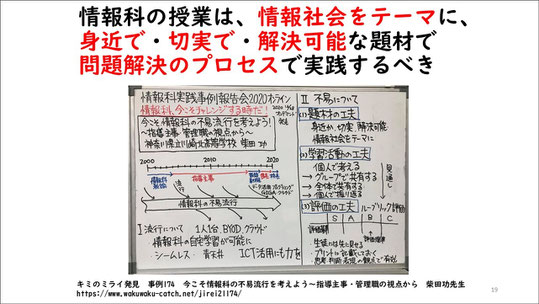 情報科の授業は、情報社会をテーマに、
身近で・切実で・解決可能な題材で
問題解決のプロセスで実践するべき
情報科実践事例報告会2020オンライン
情報科、今こそチャレンジする時だ!
今こそ情報科の不易流行を考えよう!
～指導主事・管理職の視点から～
神奈川県立川崎北高等学校 柴田 功
2000 2010 2020
指導主事
流行
情報科の不易流行
I 流行について 1人1台, BYOD, クラウド
情報科の自宅学習が可能に
シームレス 青天井 ICT活用にも力を
II 不易について
(1)題材の工夫
身近か, 切実, 解決可能
情報社会をテーマに
(2)学習活動の工夫
個人で考える
→グループで共有する
→全体で共有する
→個人で振り返る
見通し
(3)評価の工夫 ルーブリック評価
S A B C
評価規準
・生徒には先に見せる
・プリントに記載しておく
キミのミライ発見 事例174 今こそ情報科の不易流行を考えよう～指導主事・管理職の視点から 柴田功先生
https://www.wakuwaku-catch.net/jirei21174/
19